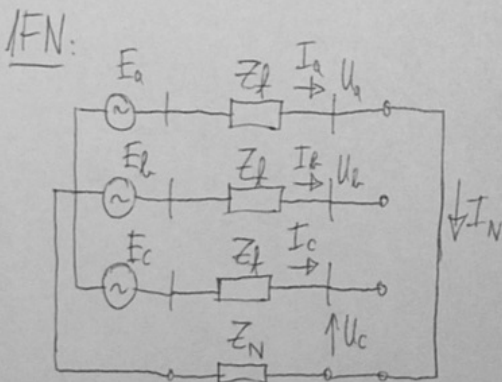 1FN:
Ea Zf Ia Ua
Eb Zf Ib Ub
IN
Ec Zf Ic
ZN Uc